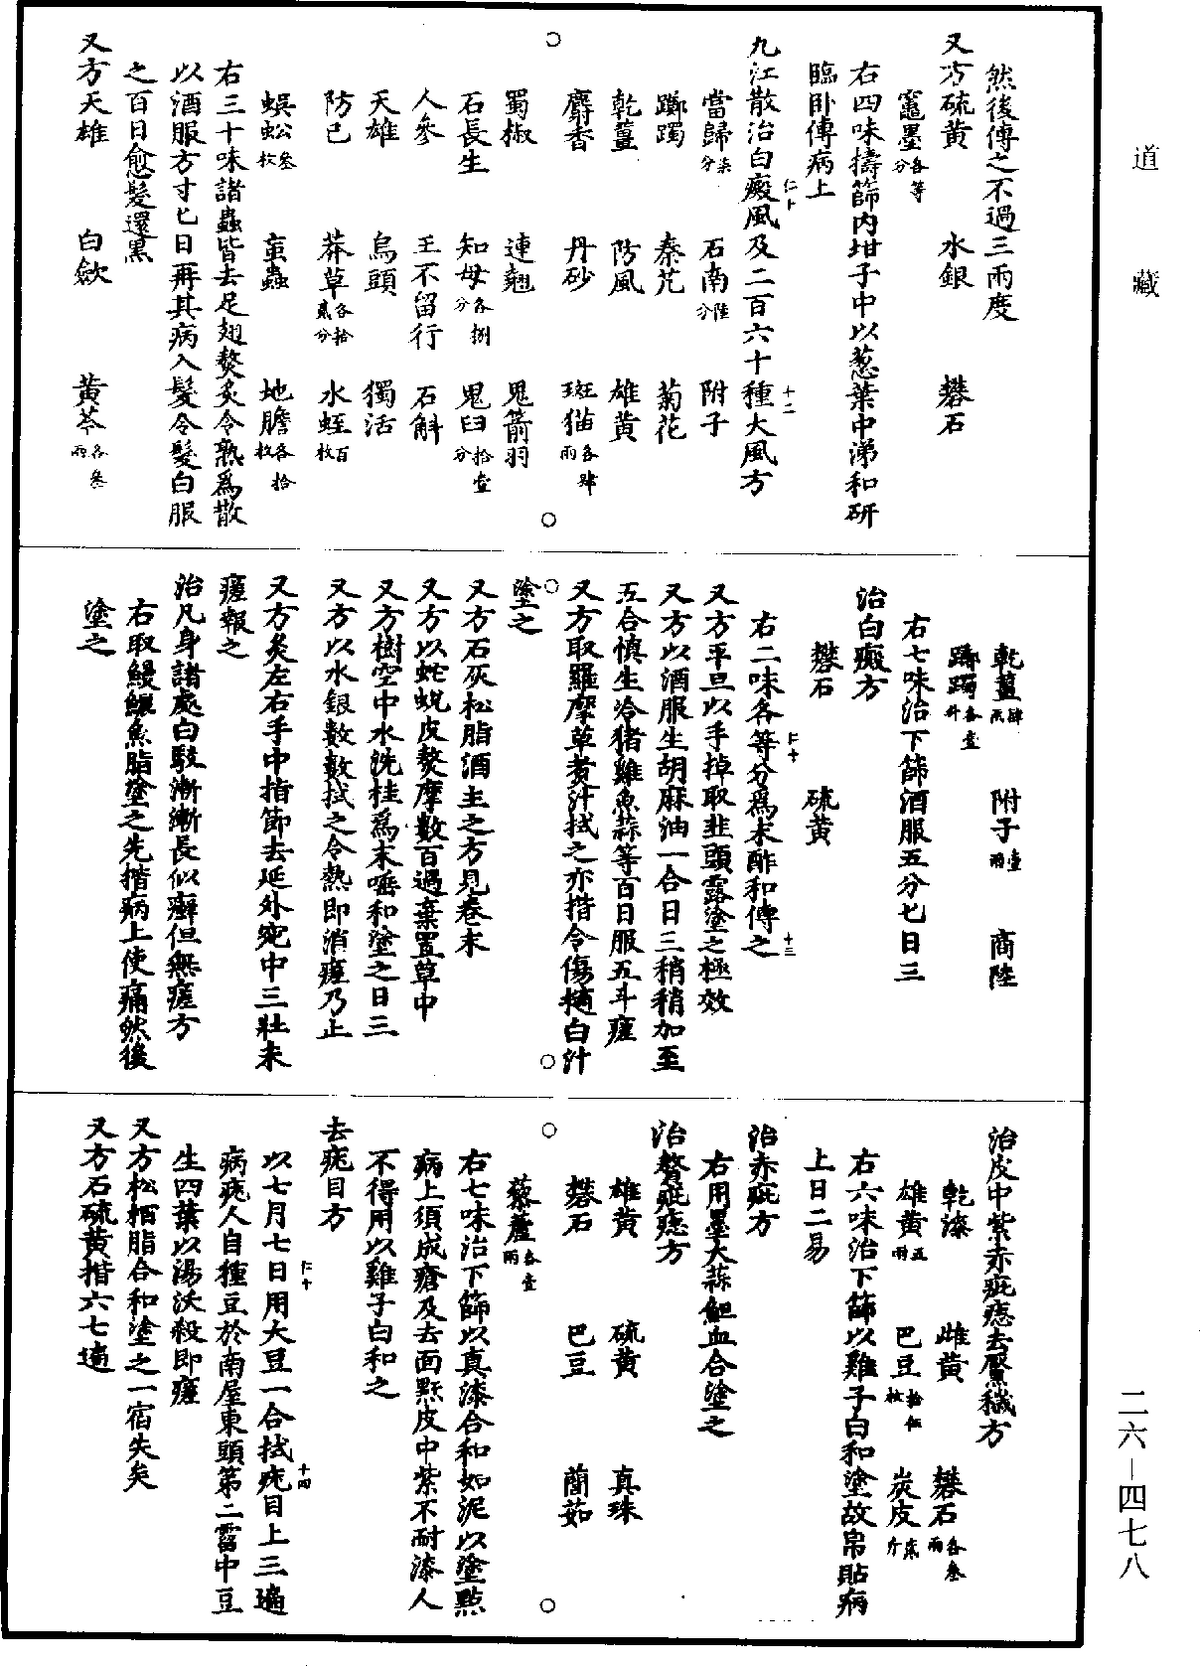 道藏
然後傅之不過三兩度
又方硫黃　水銀　礬石
竈墨各等分
右四味擣篩內坩子中以葱葉中涕和研
臨卧傅病上
九江散治白癜風及二百六十種大風方
仁十　十二
當歸柒分　石南陸分　附子
躑躅　秦艽　菊花
乾薑　防風　雄黃
麝香　丹砂　斑猫各肆兩
蜀椒　連翹　鬼箭羽
石長生　知母各捌分　鬼臼拾壹分
人參　王不留行　石斛
天雄　烏頭　獨活
防已　莽草各拾貳分　水蛭百枚
蜈蚣叁枚　䖟蟲　地膽各拾枚
右三十味諸蟲皆去足翅熬炙令熟爲散
以酒服方寸匕日再其病入髮令髮白服
之百日愈髮還黑
又方天雄　白歛　黃芩各叁兩
乾薑肆兩　附子壹兩　商陸
躑躅各壹升
右七味治下篩酒服五分匕日三
治白癜方
礬石　硫黃
右二味各等分爲末酢和傅之
仁十　十三
又方平旦以手掉取韭頭露塗之極效
又方以酒服生胡麻油一合日三稍稍加至
五合慎生冷猪雞魚蒜等百日服五斗瘥
又方取羅摩草煑汁拭之亦揩令傷擿白汁
塗之
又方石灰松脂酒主之方見卷末
又方以蛇蛻皮熬摩數百過棄置草中
又方樹空中水洗桂爲末唾和塗之日三
又方以水銀數數拭之令熱即消瘥乃止
又方灸左右手中指節去延外宛中三壯未
瘥報之
治凡身諸處白駁漸漸長似癬但無瘥方
右取鰻鱺魚脂塗之先揩病上使痛然後
塗之
治皮中紫赤疵痣去黶穢方
乾漆　雌黃　礬石各叁兩
雄黃五兩　巴豆拾伍枚　炭皮貳斤
右六味治下篩以雞子白和塗故帛貼病
上日二易
治赤疵方
右用墨大蒜䱇血合塗之
治贅疵痣方
雄黃　硫黃　真珠
礬石　巴豆　䕡茹
藜蘆各壹兩
右七味治下篩以真漆合和如泥以塗㸃
病上須成瘡及去面㸃皮中紫不耐漆人
不得用以雞子白和之
去疣目方
以七月七日用大豆一合拭疣目上三遍
仁十　十四
病疣人自種豆於南屋東頭第二霤中豆
生四葉以湯沃殺即瘥
又方松栢脂合和塗之一宿失矣
又方石硫黃揩六七遍
二六－四七八